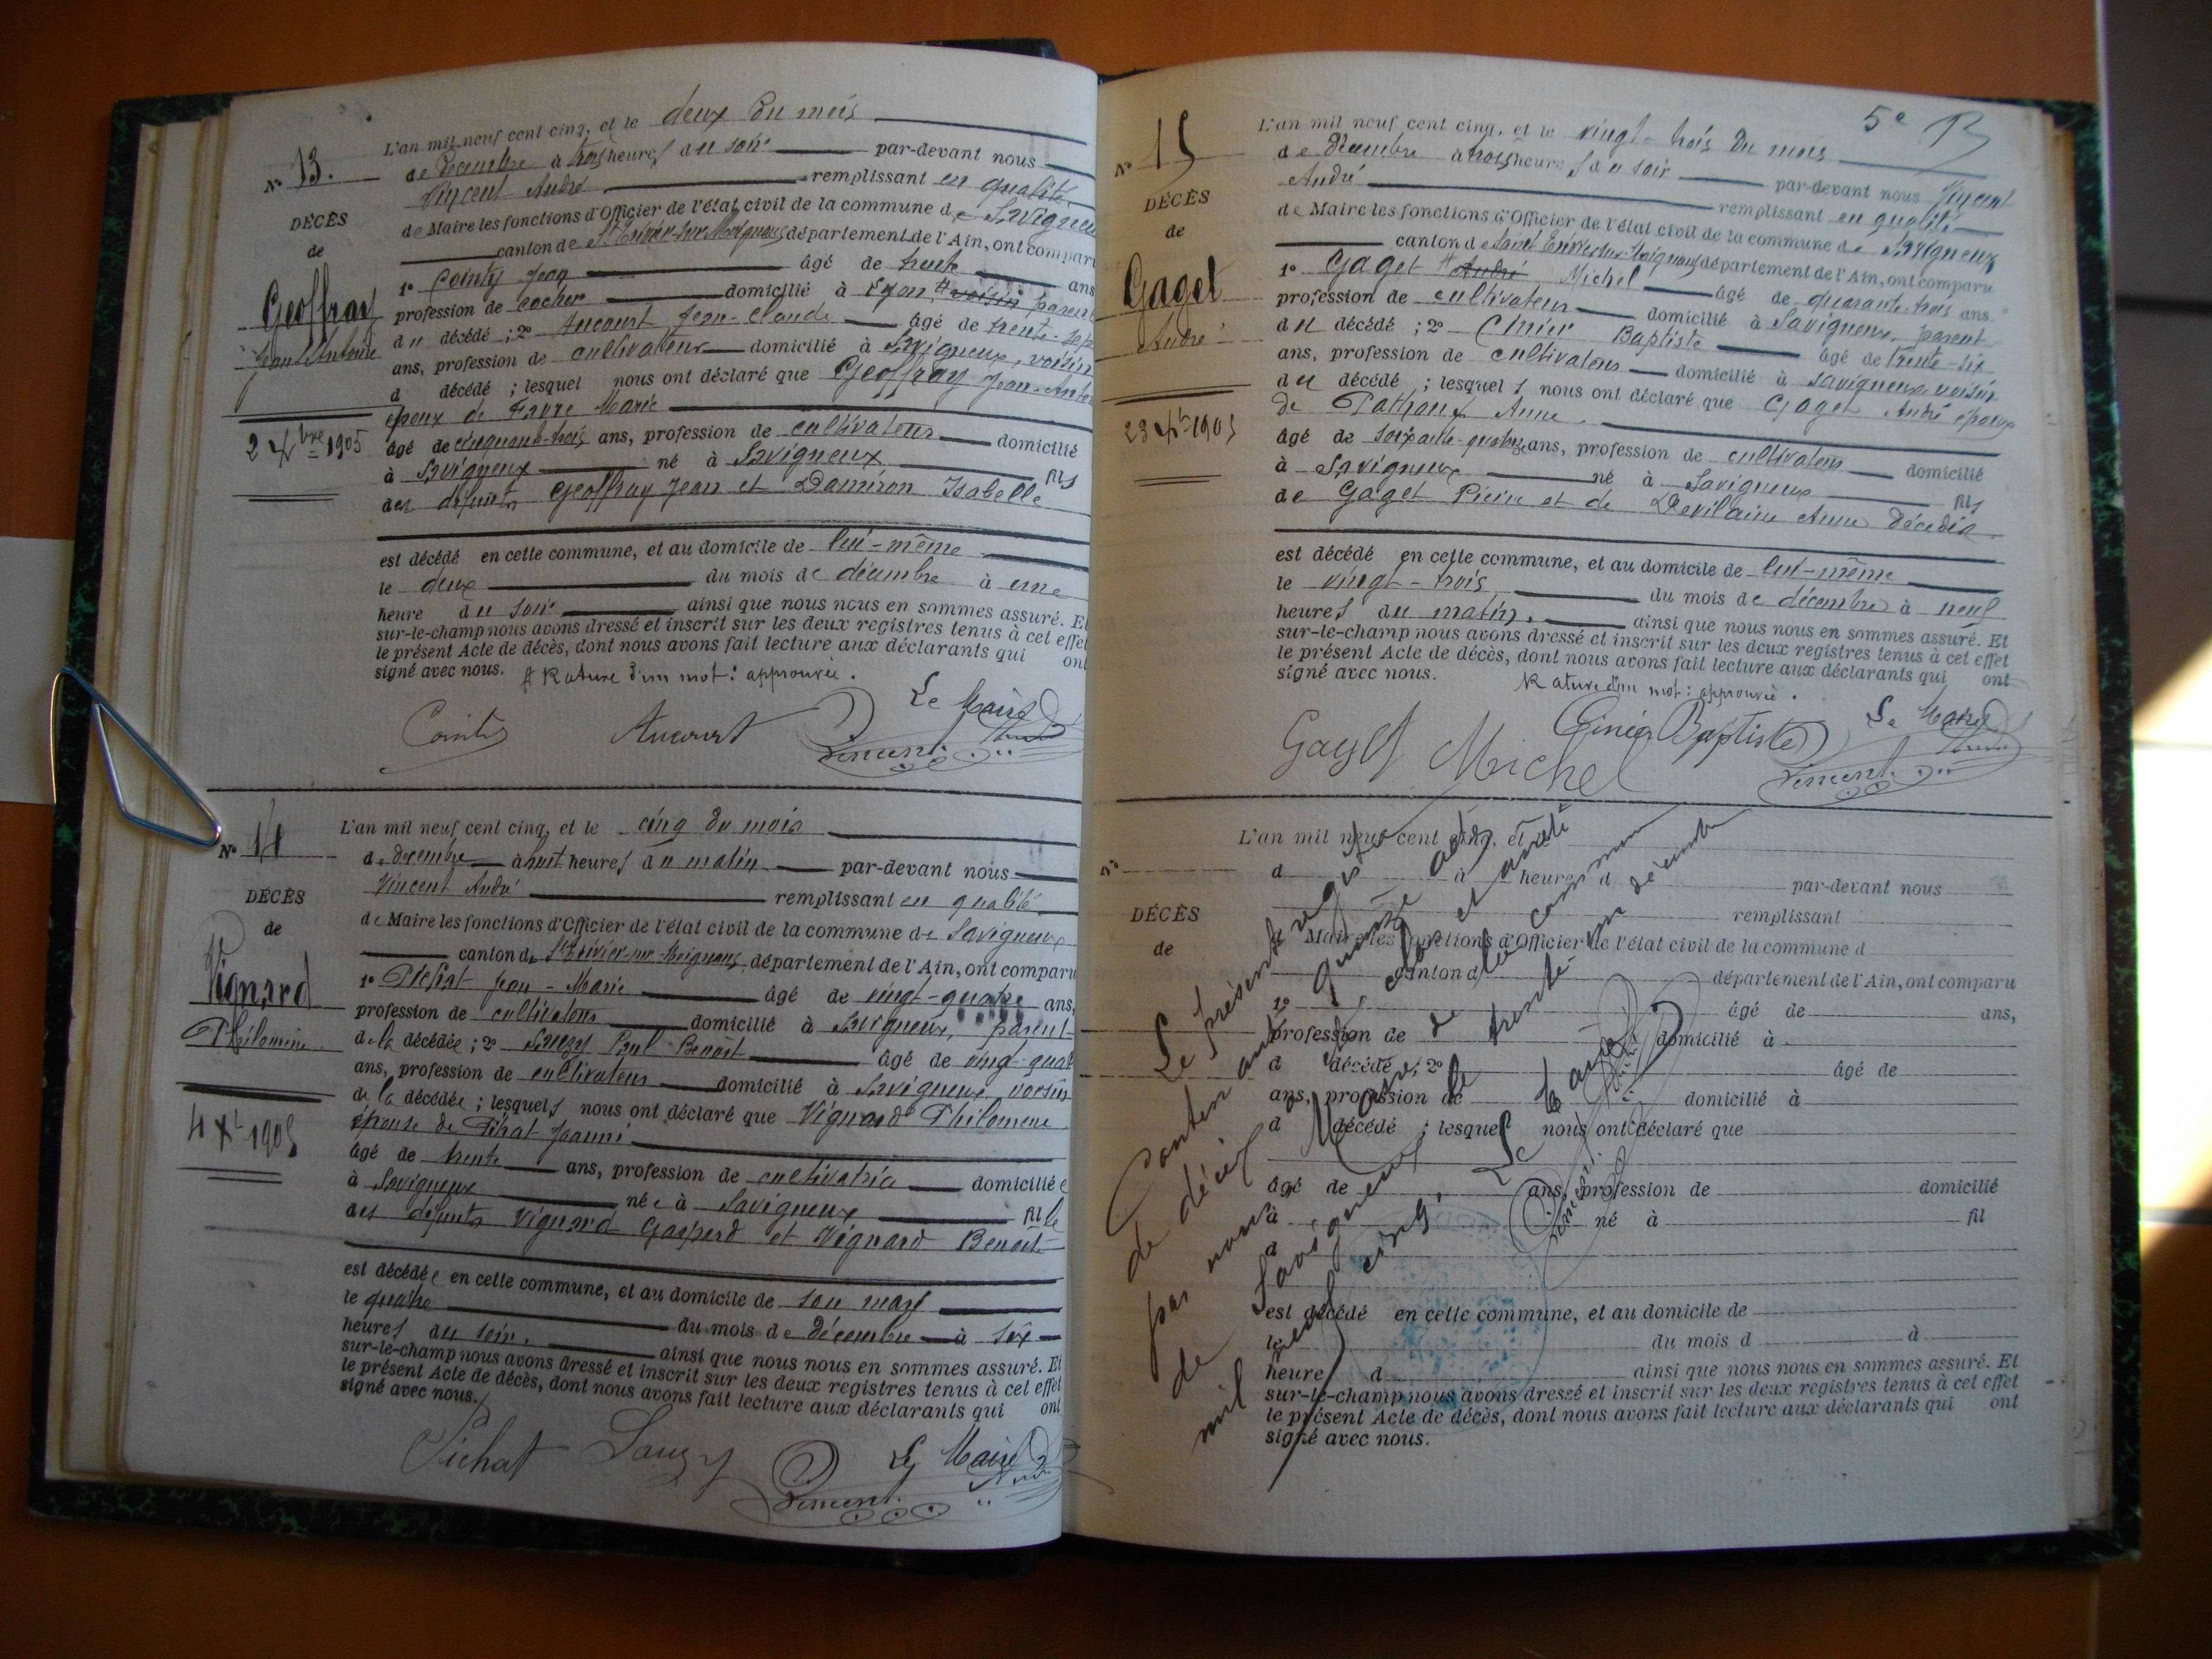 N° 13.
DÉCÈS
de
Geoffray
Jean-Antoine
2 Xbre 1905
L'an mil neuf cent cinq, et le deux du mois
de décembre à trois heures du soir par-devant nous
Vincent André remplissant en qualité
de Maire les fonctions d'Officier de l'état civil de la commune de Savigneux
canton de St Trivier-sur-Moignans, département de l'Ain, ont comparu
1° Cointy Jean âgé de trente ans
profession de cocher domicilié à Lyon, # voisin parent
du décédé ; 2° Aucourt Jean-Claude âgé de trente-sept
ans, profession de cultivateur domicilié à Savigneux, voisin
d décédé ; lesquel nous ont déclaré que Geoffray Jean-Antoi
époux de Favre Marie
âgé de cinquante-trois ans, profession de cultivateur domicilié
à Savigneux né à Savigneux fils
des défunts Geoffray Jean et Damiron Isabelle
est décédé en cette commune, et au domicile de lui-même
le deux du mois de décembre à une
heure du soir ainsi que nous nous en sommes assuré. Et
sur-le-champ nous avons dressé et inscrit sur les deux registres tenus à cet effet
le présent Acte de décès, dont nous avons fait lecture aux déclarants qui ont
signé avec nous. # Rature d'un mot : approuvée.
Cointy Aucourt Vincent Le Maire
N° 14
DÉCÈS
de
Vignard
Philomène
4 Xbre 1905
L'an mil neuf cent cinq, et le cinq du mois
de décembre à huit heures du matin par-devant nous
Vincent André remplissant en qualité
de Maire les fonctions d'Officier de l'état civil de la commune de Savigneux
canton de St Trivier-sur-Moignans, département de l'Ain, ont comparu
1° Pichat Jean-Marie âgé de vingt-quatre ans,
profession de cultivateur domicilié à Savigneux, parent
de la décédée ; 2° Sauzy Paul Benoît âgé de vingt-quat
ans, profession de cultivateur domicilié à Savigneux, voisin
de la décédée ; lesquels nous ont déclaré que Vignard Philomène
épouse de Pichat Joanni
âgé de trente ans, profession de cultivatrice domiciliée
à Savigneux née à Savigneux fille
des défunts Vignard Gaspard et Vignard Benoîte
est décédée en cette commune, et au domicile de son mari
le quatre du mois de décembre à six
heures du soir. ainsi que nous nous en sommes assuré. Et
sur-le-champ nous avons dressé et inscrit sur les deux registres tenus à cet effet
le présent Acte de décès, dont nous avons fait lecture aux déclarants qui ont
signé avec nous.
Pichat Sauzy Vincent Le Maire
5e
N° 15
DÉCÈS
de
Gaget
André
23 Xbre 1905
L'an mil neuf cent cinq, et le vingt-trois du mois
de décembre à trois heures du soir par-devant nous Vincent
André remplissant en qualité
de Maire les fonctions d'Officier de l'état civil de la commune de Savigneux
canton de Saint Trivier-sur-Moignans département de l'Ain, ont comparu
1° Gaget # André Michel âgé de quarante-trois ans.
profession de cultivateur domicilié à Savigneux, parent
du décédé ; 2° Cinier Baptiste âgé de trente-six
ans, profession de cultivateur domicilié à Savigneux, voisin
du décédé ; lesquels nous ont déclaré que Gaget André époux
de Anne
âgé de soixante-quatorze ans, profession de cultivateur domicilié
à Savigneux né à Savigneux fils
de Gaget Pierre et de Devilaine Anne décédés
est décédé en cette commune, et au domicile de lui-même
le vingt-trois du mois de décembre à neuf
heures du matin. ainsi que nous nous en sommes assuré. Et
sur-le-champ nous avons dressé et inscrit sur les deux registres tenus à cet effet
le présent Acte de décès, dont nous avons fait lecture aux déclarants qui ont
signé avec nous. Rature d'un mot : approuvée.
Gaget Michel Cinier Baptiste Vincent Le Maire
N°
DÉCÈS
de
L'an mil neuf cent cinq, et le
d à heure d par-devant nous
remplissant
d Maire les fonctions d'Officier de l'état civil de la commune d
canton d département de l'Ain, ont comparu
1° âgé de ans,
profession de domicilié à
d décédé ; 2° âgé de
ans, profession de domicilié à
d décédé ; lesquel nous ont déclaré que
âgé de ans, profession de domicilié
à né à fil
d
est décédé en cette commune, et au domicile de
le du mois d à
heure d ainsi que nous nous en sommes assuré. Et
sur-le-champ nous avons dressé et inscrit sur les deux registres tenus à cet effet
le présent Acte de décès, dont nous avons fait lecture aux déclarants qui ont
signé avec nous.
Le présent registre
Contenant quinze actes
de décès, clos et arrêté
par nous Maire de la commune
de Savigneux le trente-un décembre
mil neuf cent cinq.
Le Maire
Vincent